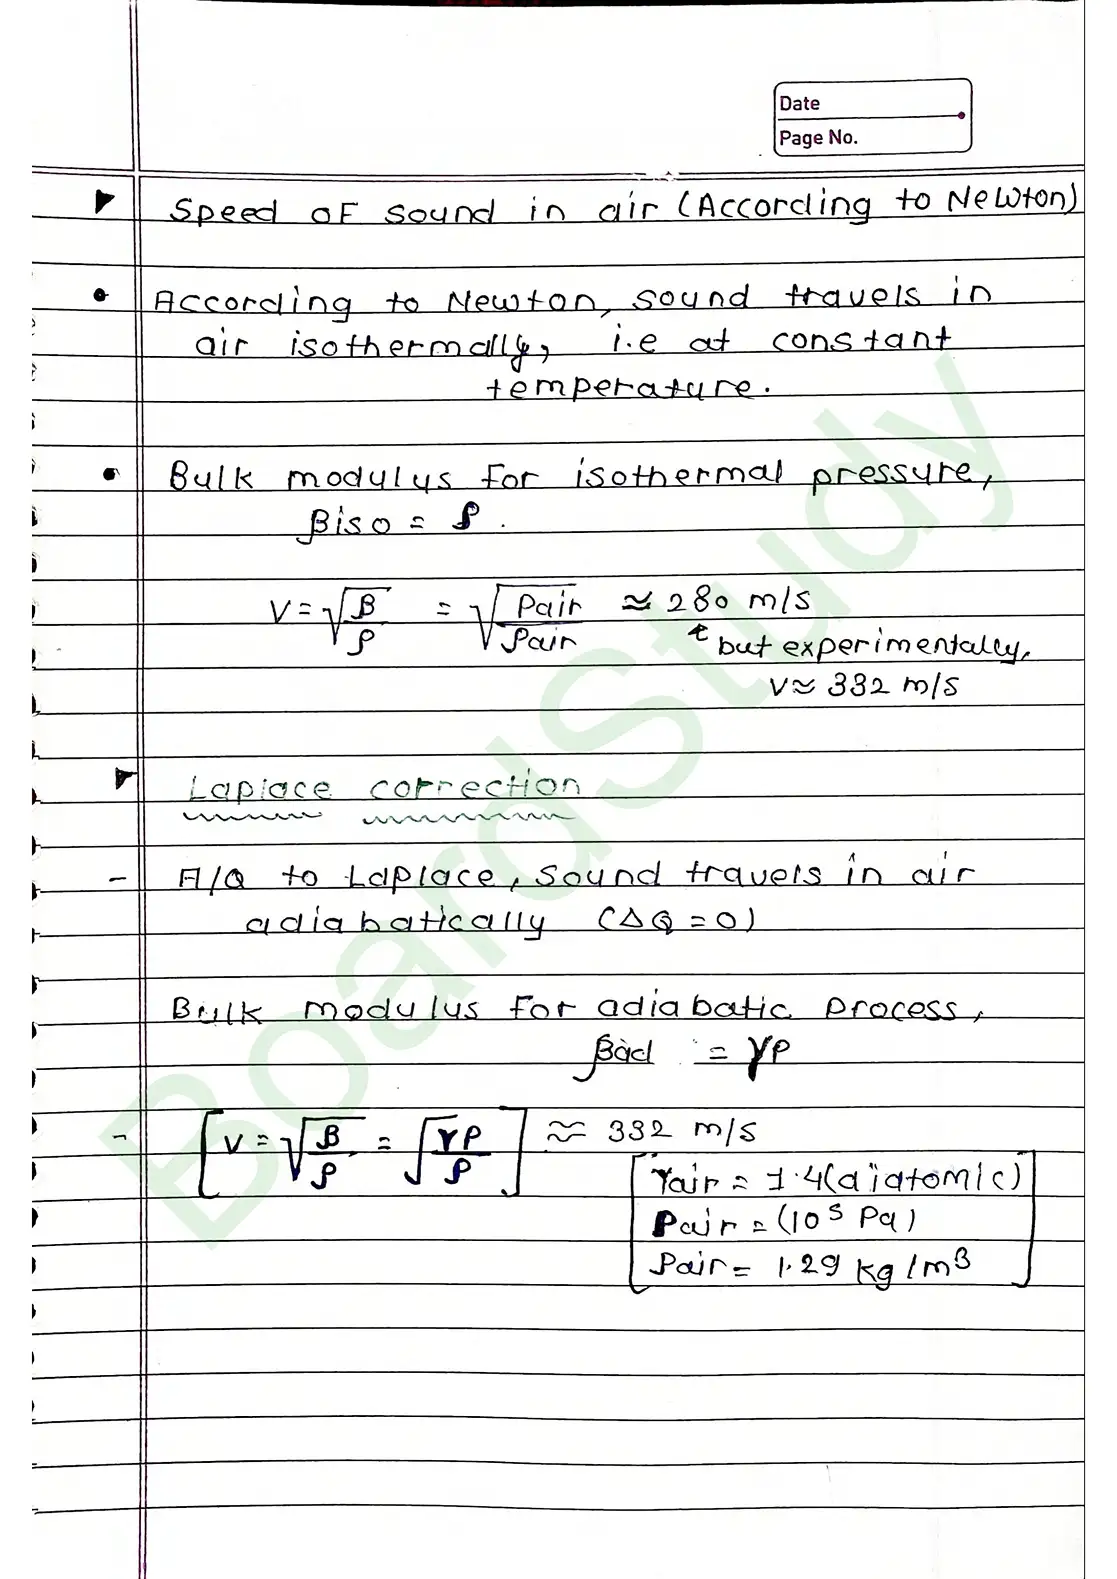 Date
Page No.
Speed of sound in air (According to Newton)
According to Newton, sound travels in
air isothermally, i.e at constant
temperature.
Bulk modulus for isothermal pressure,
βiso = P.
V = √(β/ρ) = √(Pair/ρair) ≈ 280 m/s
but experimentally,
V ≈ 332 m/s
Laplace correction
- A/Q to Laplace, sound travels in air
adiabatically (ΔQ = 0)
Bulk modulus for adiabatic process,
βad = γP
- [V = √(β/ρ) = √(γP/ρ)] ≈ 332 m/s
γair = 1.4 (diatomic)
Pair = (10⁵ Pa)
ρair = 1.29 kg/m³
BoardStudy